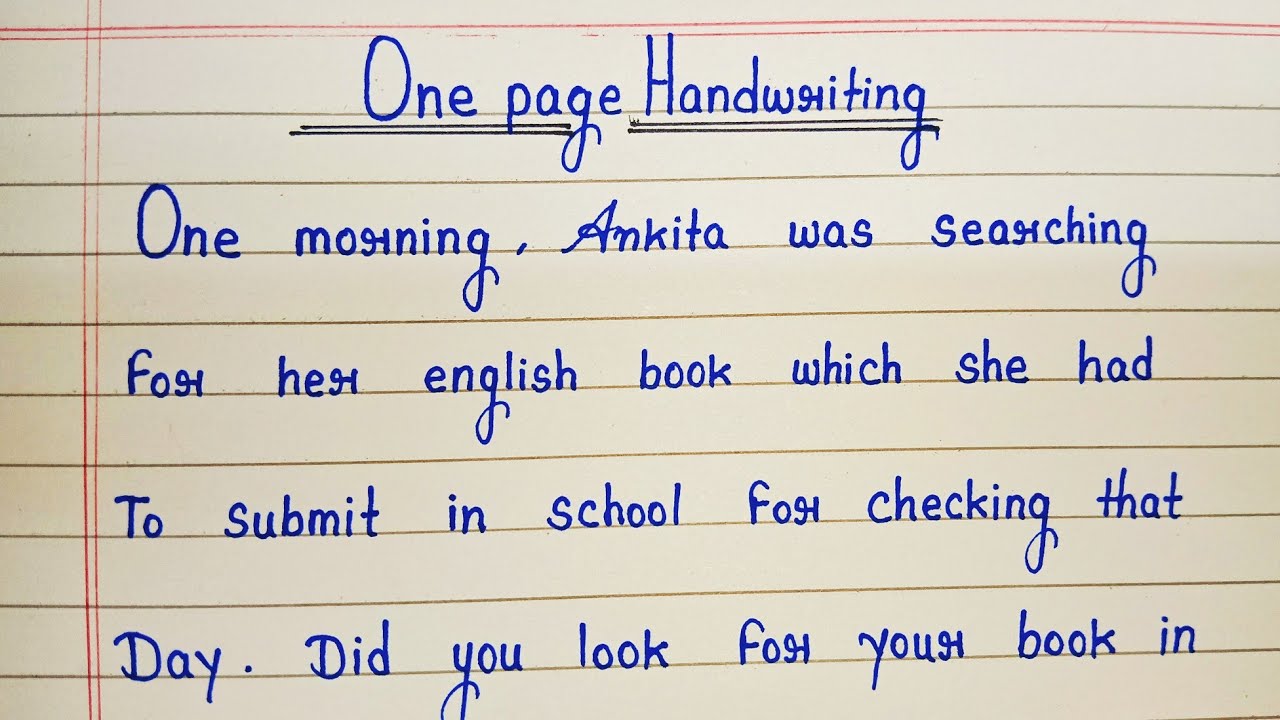 One page Handwriting
One morning, Ankita was searching
for her english book which she had
To submit in school for checking that
Day. Did you look for your book in